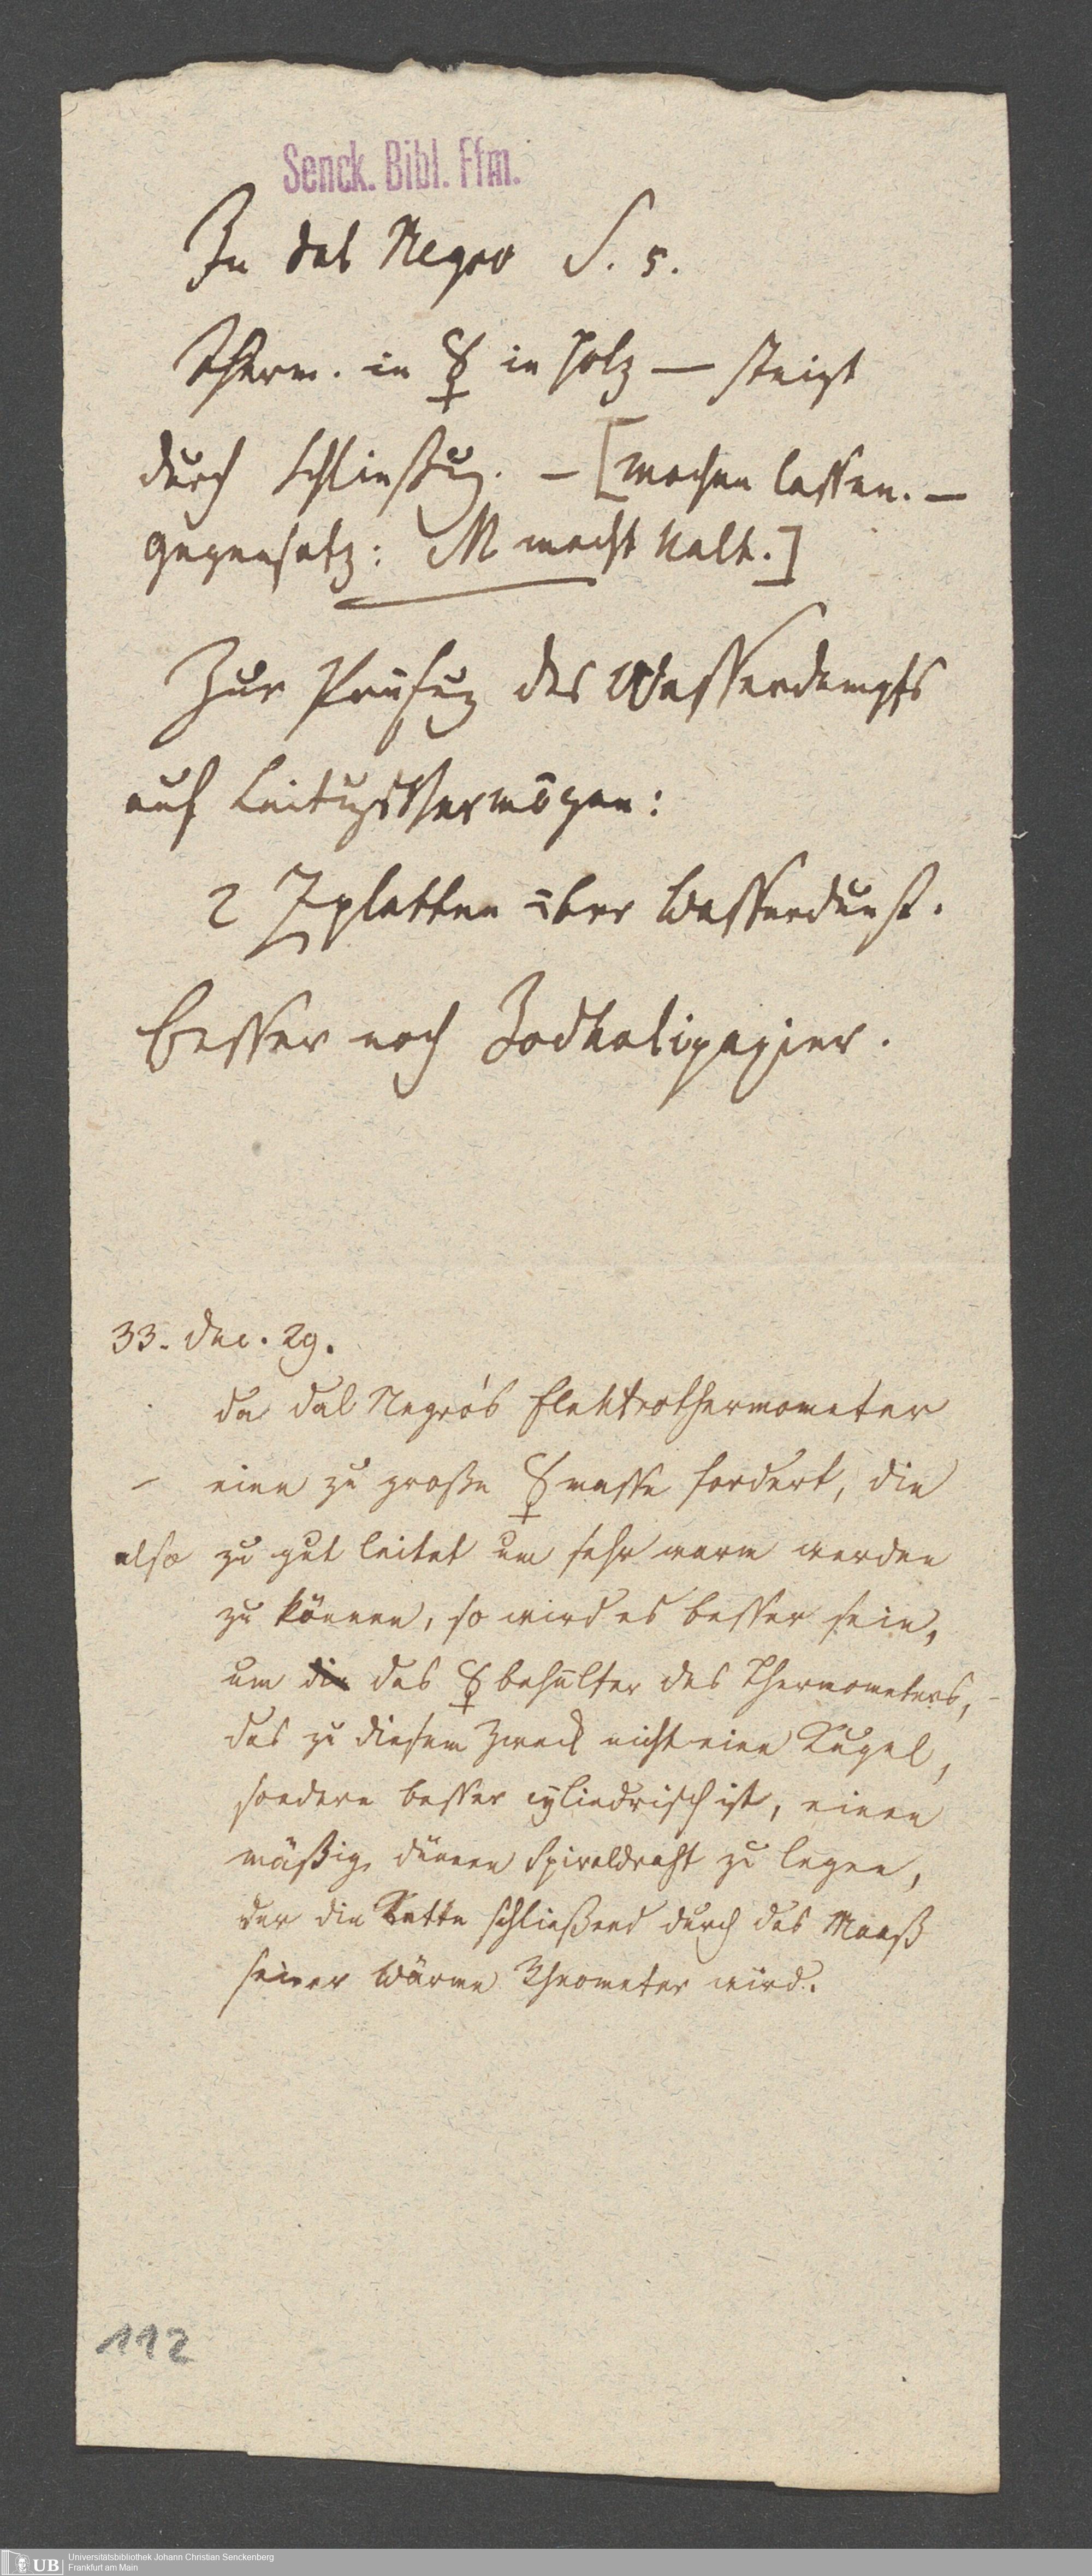 Senck. Bibl. Ffm.
Zu dal Negro S. 5.
Therm. in ☿ in Holz — steigt
durch Schließug. — [machen lassen. —
Gegensatz: M macht kalt.]
Zur Prüfug des Wasserdampfs
auf Leitugsvermögen:
2 platten über Wasserdunst.
besser noch Jodkalipapier.
33. Dec. 29.
da dal Negro's Elektrothermometer
eine zu große ☿masse fordert, die
also zu gut leitet um sehr warm werden
zu können, so wird es besser sein,
um die das ☿behälter des Thermometers,
das zu diesem Zweck nicht eine Kugel,
sondern besser cylindrisch ist, einen
mäßig dünnen Spiraldraht zu legen,
der die Kette schließend durch das Maaß
seiner Wärme Rheometer wird.
112
UB
Universitätsbibliothek Johann Christian Senckenberg
Frankfurt am Main